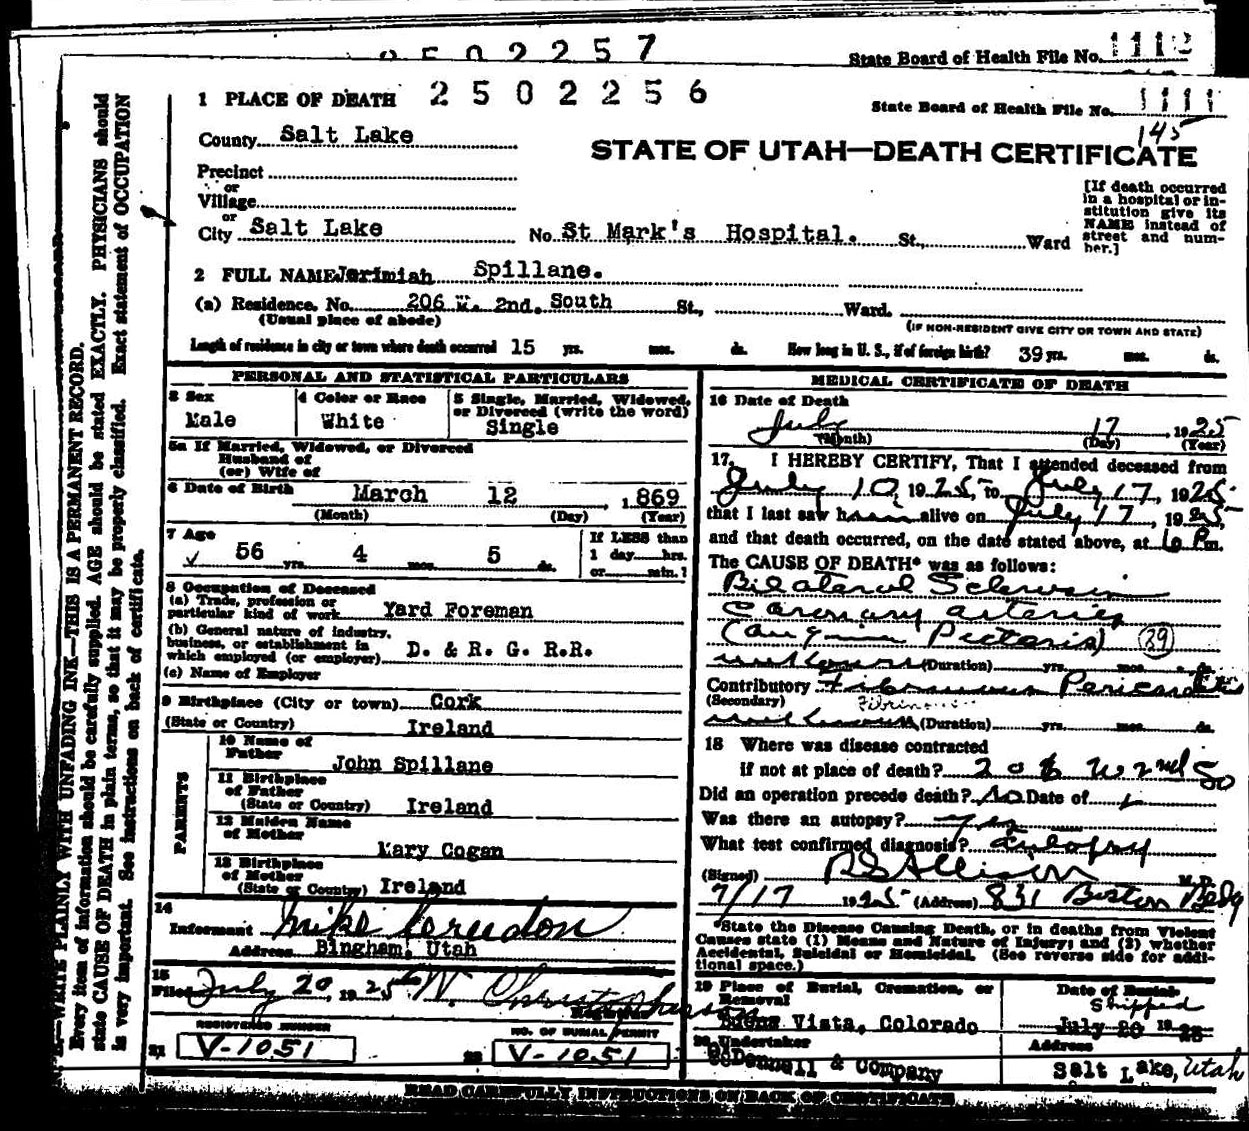 2502257
State Board of Health File No. 1112
1 PLACE OF DEATH 2502256
State Board of Health File No. 1111
145
County Salt Lake
STATE OF UTAH—DEATH CERTIFICATE
Precinct
or
Village
or
City Salt Lake No. St Mark's Hospital. St., Ward
[If death occurred
in a hospital or in-
stitution give its
NAME instead of
street and num-
ber.]
2 FULL NAME Jerimiah Spillane.
(a) Residence, No. 206 W. 2nd. South St., Ward.
(Usual place of abode) (IF NON-RESIDENT GIVE CITY OR TOWN AND STATE)
Length of residence in city or town where death occurred 15 yrs. mos. ds. How long in U. S., if of foreign birth? 39 yrs. mos. ds.
PERSONAL AND STATISTICAL PARTICULARS
3 Sex
Male
4 Color or Race
White
5 Single, Married, Widowed,
or Divorced (write the word)
Single
5a If Married, Widowed, or Divorced
Husband of
(or) Wife of
6 Date of Birth March 12, 1869
(Month) (Day) (Year)
7 Age
56 yrs. 4 mos. 5 ds.
If LESS than
1 day....hrs.
or....min.?
8 Occupation of Deceased
(a) Trade, profession or
particular kind of work Yard Foreman
(b) General nature of industry,
business, or establishment in
which employed (or employer) D. & R. G. R.R.
(c) Name of Employer
9 Birthplace (City or town) Cork
(State or Country) Ireland
PARENTS
10 Name of
Father John Spillane
11 Birthplace
of Father
(State or Country) Ireland
12 Maiden Name
of Mother Mary Cogan
13 Birthplace
of Mother
(State or Country) Ireland
14
Informant Mike Creedon
Address Bingham, Utah
15
Filed July 20, 1925 W. Christopherson
Registrar
REGISTERED NUMBER
21 V-1051
NO. OF BURIAL PERMIT
22 V-1051
MEDICAL CERTIFICATE OF DEATH
16 Date of Death
July 17, 1925
(Month) (Day) (Year)
17. I HEREBY CERTIFY, That I attended deceased from
July 10, 1925, to July 17, 1925
that I last saw him alive on July 17, 1925
and that death occurred, on the date stated above, at 6 Pm.
The CAUSE OF DEATH* was as follows:
Bilateral Sclerosis
Coronary arteries
(Angina Pectoris) 89
unknown (Duration) yrs. mos. ds.
Contributory Fibrinous Pericarditis
(Secondary) Fibrinous
unknown (Duration) yrs. mos. ds.
18 Where was disease contracted
if not at place of death? 206 W 2nd So
Did an operation precede death? No Date of
Was there an autopsy? Yes
What test confirmed diagnosis? autopsy
(Signed) R S Allison M. D.
7/17 1925 (Address) 831 Boston Bldg
*State the Disease Causing Death, or in deaths from Violent
Causes state (1) Means and Nature of Injury; and (2) whether
Accidental, Suicidal or Homicidal. (See reverse side for addi-
tional space.)
19 Place of Burial, Cremation, or
Removal
Buena Vista, Colorado
Date of Burial
Shipped
July 20 1925
20 Undertaker
O'Donnell & Company
Address
Salt Lake, Utah
READ CAREFULLY INSTRUCTIONS ON BACK OF CERTIFICATE
WRITE PLAINLY WITH UNFADING INK—THIS IS A PERMANENT RECORD.
Every item of information should be carefully supplied. AGE should be stated EXACTLY. PHYSICIANS should
state CAUSE OF DEATH in plain terms, so that it may be properly classified. Exact statement of OCCUPATION
is very important. See instructions on back of certificate.